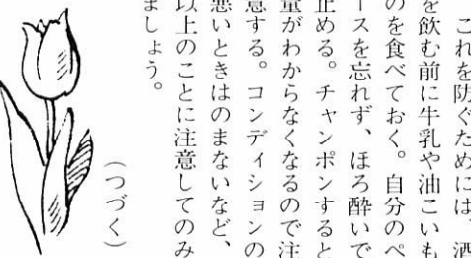 これを防ぐためには、酒
を飲む前に牛乳や油こいも
のを食べておく。自分のペ
ースを忘れず、ほろ酔いで
止める。チャンポンすると
量がわからなくなるので注
意する。コンディションの
悪いときはのまないなど、
以上のことに注意してのみ
ましょう。
(つづく)